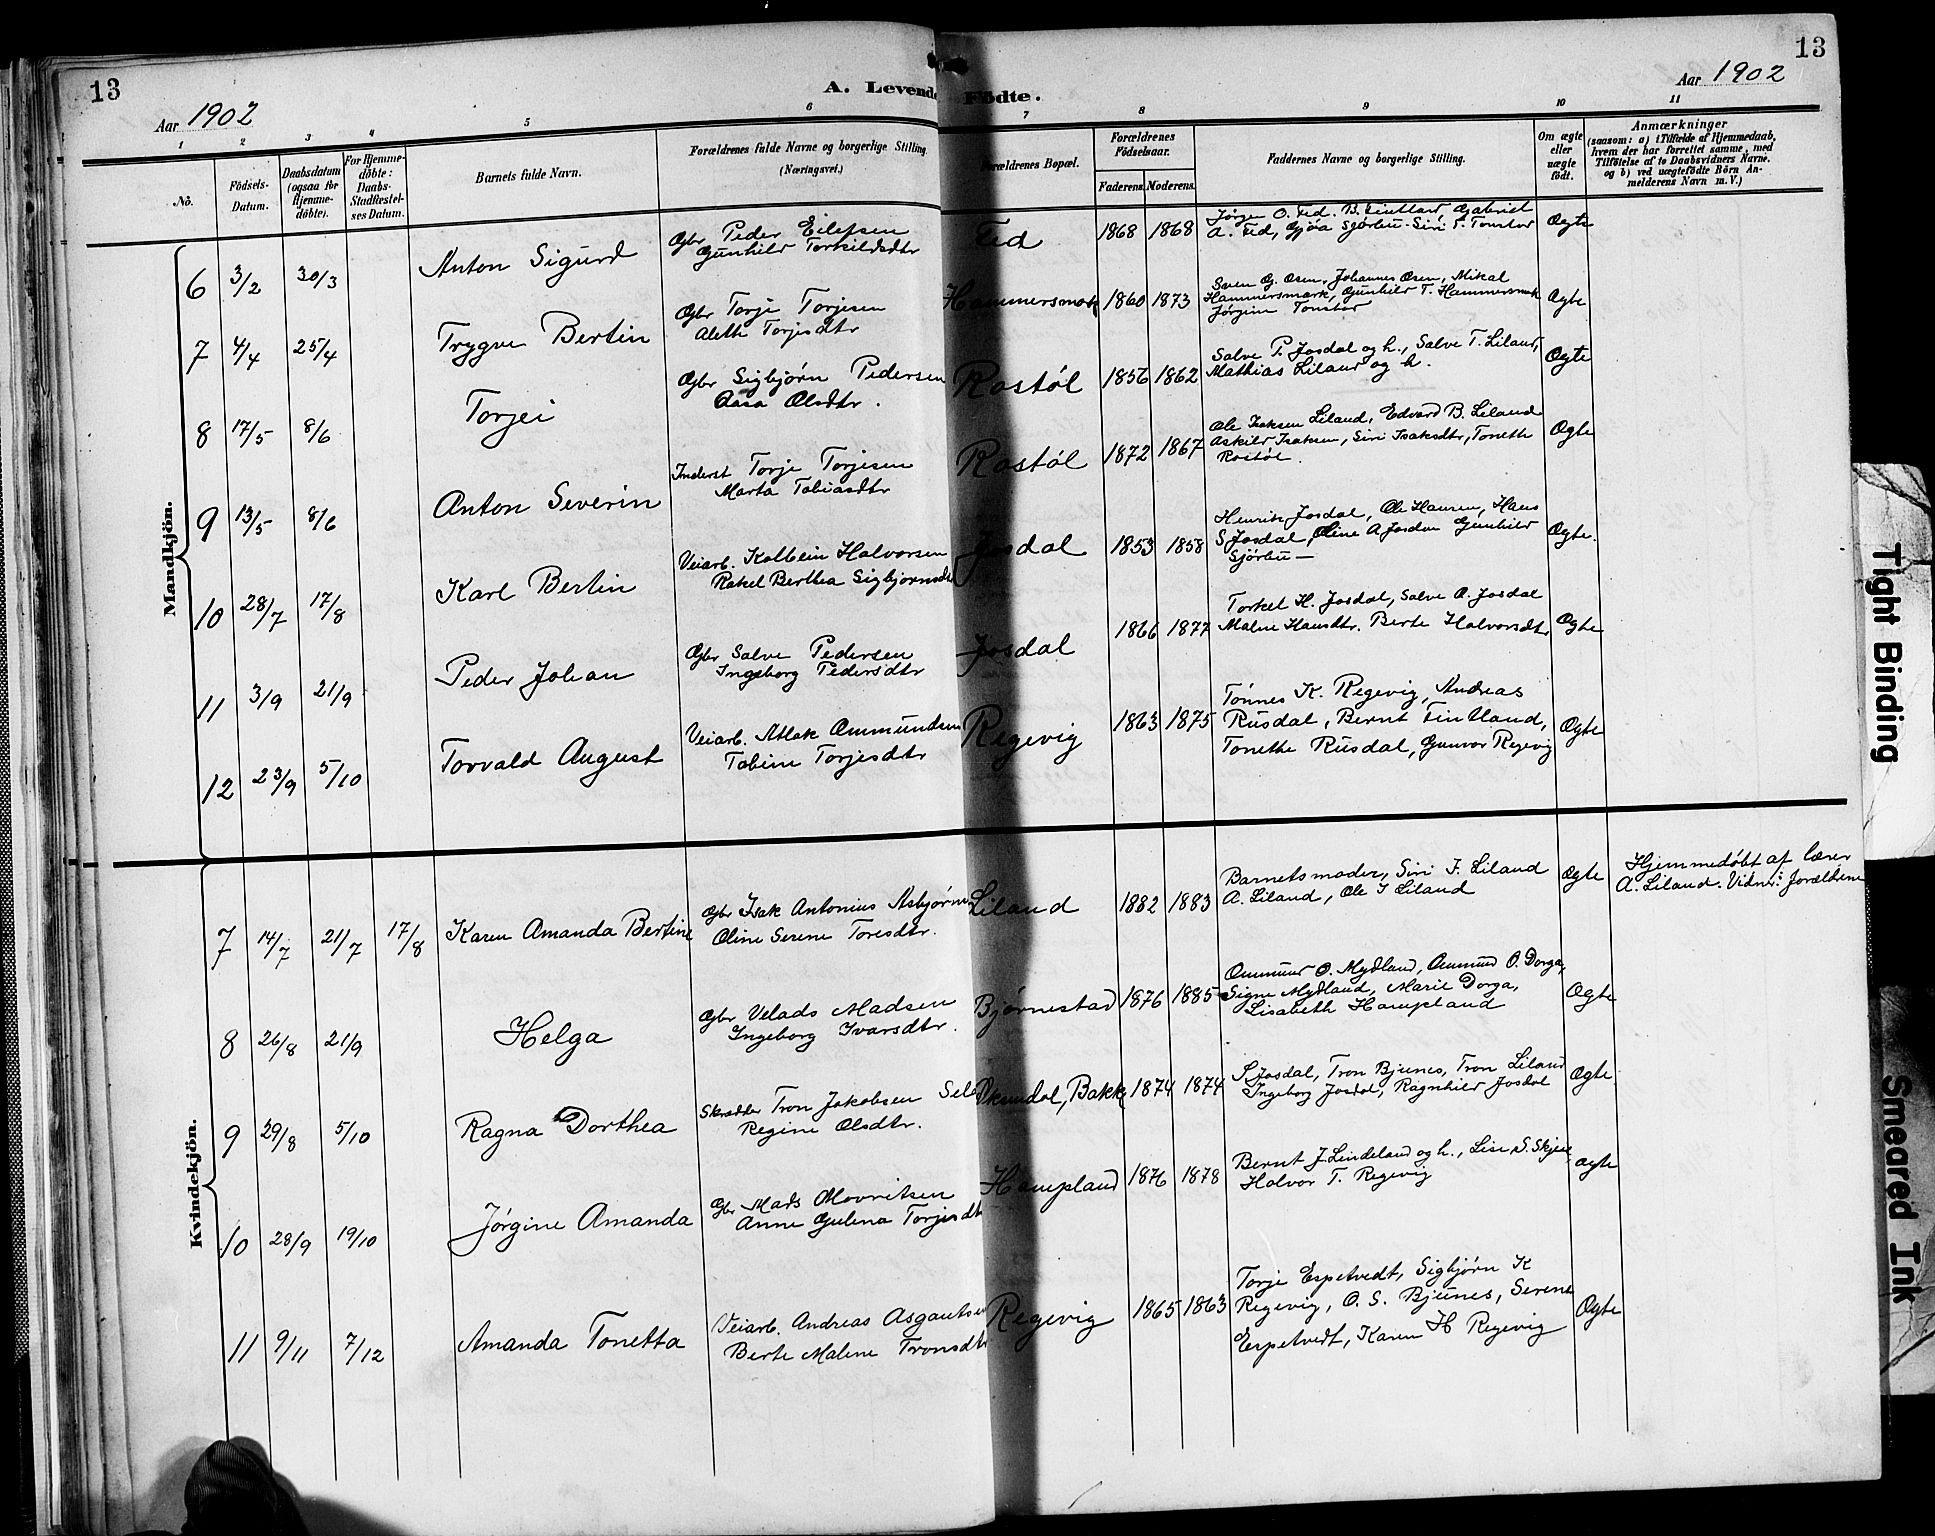 13
13
A. Levende Födte.
Aar 1902
Aar 1902
1 2 3 4 5 6 7 8 9 10 11
No.
Födsels-Datum.
Daabsdatum (ogsaa for Hjemme-döbte).
For Hjemme-döbte: Daabs-Stadfæstel-ses Datum.
Barnets fulde Navn.
Forældrenes fulde Navne og borgerlige Stilling. (Næringsvei.)
Forældrenes Bopæl.
Forældrenes Födselsaar.
Faderens. Moderens.
Faddernes Navne og borgerlige Stilling.
Om ægte eller uægte födt.
Anmærkninger
(saasom: a) i Tilfælde af Hjemmedaab, hvem der har forrettet samme, med Tilföielse af to Daabsvidners Navne. og b) ved uægtefödte Börn An-melderens Navn m. V.)
Mandkjön.
6 3/2 30/3 Anton Sigurd
Gbr Peder Eilefsen
Gunhild Torkildsdtr
Fed 1868 1868
Jørgen O. Fed. B. Fintland Gabriel
A. Fed, Gjøa Sjørbu. Siri T. Tonstad
Ægte
7 4/4 25/4 Trygve Bertin
Gbr Torje Torjesen
Alette Torjesdtr
Hammersmark 1860 1873
Sven G. Osen, Johannes Osen, Mikal
Hammersmark, Gunhild T. Hammersmark
Jørgine Tonstad
Ægte
8 17/5 8/6 Torjei
Gbr Sigbjørn Pedersen
Aasa Olsdtr.
Rostøl 1856 1862
Salve P. Josdal og h., Salve T. Liland,
Mathias Liland og h.
Ægte
9 13/5 8/6 Anton Severin
Inderst Torje Torjesen
Marta Tobiasdtr
Rostøl 1872 1867
Ole Isaksen Liland, Edvard B. Liland
Askild Isaksen, Siri Isaksdtr, Tonethe
Rostøl.
Ægte
10 28/7 17/8 Karl Bertin
Veiarb. Kolbein Halvorsen
Rakel Berthea Sigbjørnsdtr
Josdal 1853 1858
Henrik Josdal, Ole Hansen, Hans
S Josdal, Oline A Josdal Gunhild
Sjørbu —
Ægte.
11 3/9 21/9 Peder Johan
Gbr Salve Pedersen
Ingeborg Pedersdtr
Josdal 1866 1877
Torkel H. Josdal, Salve A. Josdal
Malene Hansdtr. Berte Halvorsdtr
Ægte
12 23/9 5/10 Torvald August
Veiarb. Atlak Ommundsen
Tobine Torjesdtr
Regevig 1863 1875
Tønnes K. Regevig, Andreas
Rusdal, Bernt Fintland,
Tonethe Rusdal, Gunvor Regevig
Ægte
Kvindekjön.
7 14/7 21/7 17/8 Karen Amanda Bertine
Gbr Isak Antonius Asbjørns
Oline Serene Toresdtr.
Liland 1882 1883
Barnets moder, Siri I. Liland
A. Liland, Ole I Liland
Ægte
Hjemmedøbt af lærer
A. Liland. Vidner: Forældrene
8 26/8 21/9 Helga
Gbr Velads Madsen
Ingeborg Ivarsdtr.
Bjørnestad 1876 1885
Ommund O. Mydland, Ommund O. Dorga,
Signe Mydland, Marie Dorga,
Lisabeth Hampland
Ægte
9 29/8 5/10 Ragna Dorthea
Skrædder Tron Jakobsen Sel
Regine Olsdtr.
Øksendal, Bakke 1874 1874
S Josdal, Tron Bjunes, Tron Liland
Ingeborg Josdal, Ragnhild Josdal
Ægte
10 28/9 19/10 Jørgine Amanda
Gbr Mads Movritsen
Anne Gulena Torjesdtr
Hampland 1876 1878
Bernt J. Lindeland og h., Lise S. Skjeie
Halvor T. Regevig
Ægte
11 9/11 7/12 Amanda Tonetta
Veiarb. Andreas Asgautsen
Berte Malene Tronsdtr
Regevig 1865 1863
Torje Espetvedt, Sigbjørn K
Regevig, O. S. Bjunes, Serene
Espetvedt, Karen H Regevig
Ægte
Tight Binding
Smeared Ink